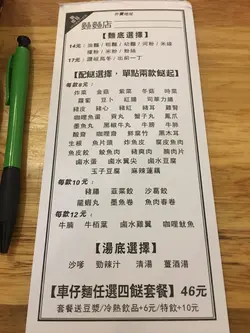 外賣專紙
麵麵店
【麵底選擇】
14元：油麵 / 粗麵 / 幼麵 / 河粉 / 米線
瀨粉 / 米粉 / 粉絲
17元：讚岐烏冬 / 出前一丁
【配餸選擇，單點兩餸起】
每款8元：
炸雲 金菇 紫菜 冬菇 時菜
蘿蔔 豆卜 紅腸 司華力腸
豬皮 豬紅 豬心 豬肚 豬耳
咖喱魚蛋 貢丸 蟹子丸 鳳爪
墨魚丸 黑椒牛丸 牛筋 牛肺
咖喱魷魚 鮮腐竹 黑木耳
生根 魚片頭 炸魚皮 魚腐
魚皮餃 鯪魚肉 豬爽肉 雞中亦
鹵水蛋 鹵水雞尖 鹵水豆腐
玉子豆腐 麻辣蓮藕
每款10元：
豬腸 韮菜餃 沙葛餃
龍蝦丸 墨魚卷 魚肉春卷
每款12元：
牛腩 牛栢葉 鹵水雞亦 咖喱魷魚
【湯底選擇】
沙嗲 勁辣汁 清湯 薑酒湯
【車仔麵任選四餸套餐】46元
套餐送豆漿/冷熱飲品+6元/特飲+10元